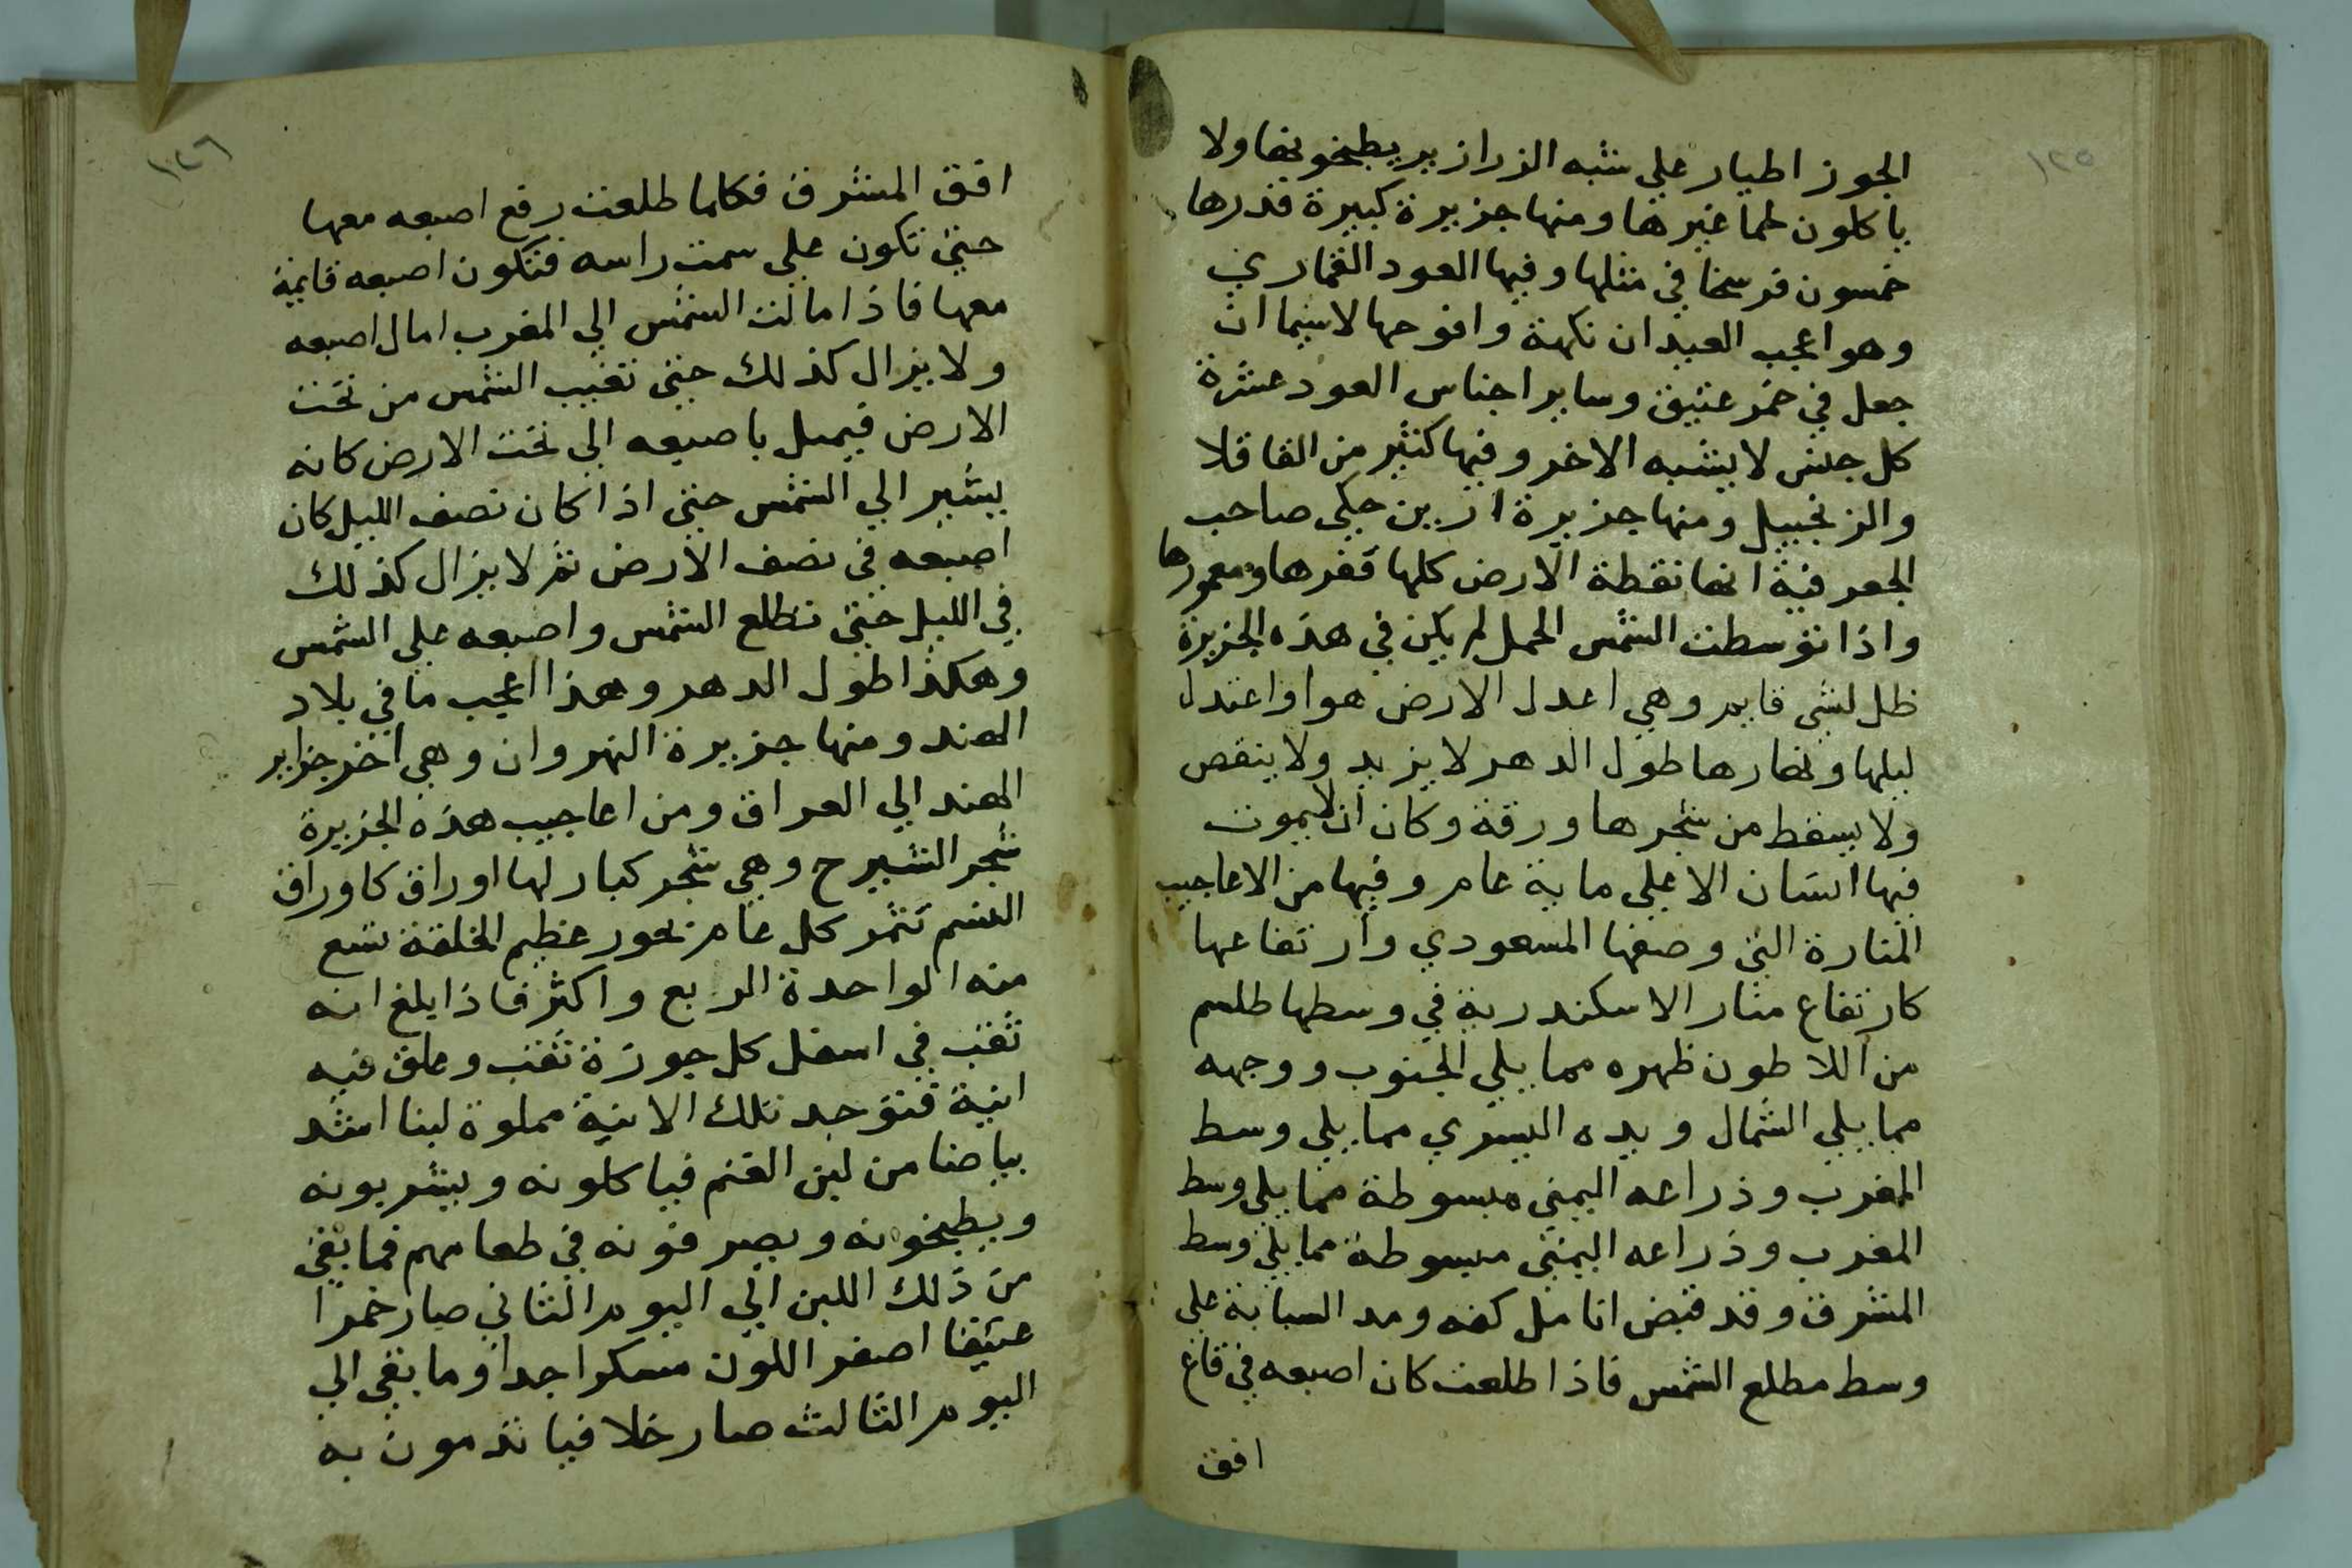 ١٢٥
الجوز اطيار على شبه الزرازير يطبخونها ولا
ياكلون لحما غيرها ومنها جزيرة كبيرة قدرها
خمسون فرسخا في مثلها وفيها العود القماري
وهو اعجب العيدان نكهة وافوحها لاسيما ان
جعل في خمر عتيق وساير اجناس العود عشرة
كل جنس لا يشبه الاخر وفيها كثير من القاقلا
والزنجبيل ومنها جزيرة ارين حكى صاحب
الجعرفية انها نقطة الارض كلها قفرها ومعمورها
واذا توسطت الشمس الحمل لم يكن في هذه الجزيرة
ظل لشى قايم وهي اعدل الارض هوا واعتدل
ليلها ونهارها طول الدهر لا يزيد ولا ينقص
ولا يسقط من شجرها ورقة وكان ان لا يموت
فيها انسان الا على ماية عام وفيها من الاعاجيب
المنارة التي وصفها المسعودي وارتفاعها
كارتفاع منار الاسكندرية في وسطها طلسم
من اللاطون ظهره مما يلي الجنوب ووجهه
مما يلي الشمال ويده اليسري مما يلي وسط
المغرب وذراعه اليمني مبسوطة مما يلي وسط
المغرب وذراعه اليمني مبسوطة مما يلي وسط
المشرق وقد قبض انامل كفه ومد السبابة على
وسط مطلع الشمس فاذا طلعت كان اصبعه في قاع
افق
١٢٦
افق المشرق فكلما طلعت رفع اصبعه معها
حتى تكون على سمت راسه فتكون اصبعه قايمة
معها فاذا مالت الشمس الي المغرب امال اصبعه
ولا يزال كذلك حتى تغيب الشمس من تحت
الارض فيميل باصبعه الي تحت الارض كانه
يشير الي الشمس حتى اذا كان نصف الليل كان
اصبعه في نصف الارض ثم لا يزال كذلك
في الليل حتى تطلع الشمس واصبعه على الشمس
وهكذا طول الدهر وهذا اعجب ما في بلاد
الهند ومنها جزيرة النهروان وهي اخر جزاير
الهند الي العراق ومن اعاجيب هذه الجزيرة
شجر الشيرح وهي شجر كبار لها اوراق كاوراق
تثمر كل عام بجوز عظيم الخلقة تسع
منه الواحدة الربع واكثر فاذا بلغ انه
ثقب في اسفل كل جوزة ثقب وعلق فيه
انية فتوجد تلك الانية مملوة لبنا اشد
بياضا من لبن الغنم فياكلونه ويشربونه
ويطبخونه ويصرفونه في طعامهم فما بقي
من ذلك اللبن الي اليوم الثاني صار خمرا
عتيقا اصفر اللون مسكرا جدا وما بقي الي
اليوم الثالث صار خلا فياتدمون به